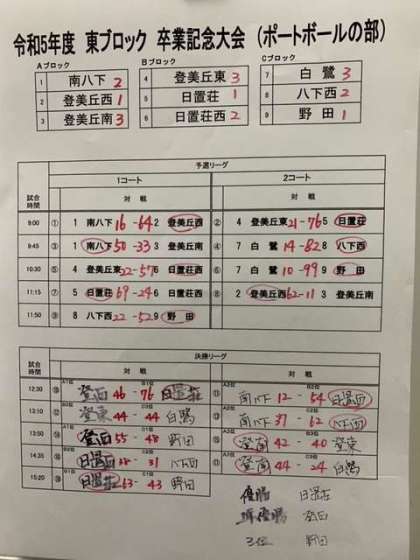 令和5年度 東ブロック 卒業記念大会 (ポートボールの部)
Aブロック Bブロック Cブロック
1 南八下 2 4 登美丘東 3 7 白鷺 3
2 登美丘西 1 5 日置荘 1 8 八下西 2
3 登美丘南 3 6 日置荘西 2 9 野田 1
予選リーグ
1コート 2コート
試合時間 対戦 対戦
9:00 ① 1 南八下 16-64 2 登美丘西 ② 4 登美丘東 21-76 5 日置荘
9:45 ③ 1 南八下 50-33 3 登美丘南 ④ 7 白鷺 14-82 8 八下西
10:30 ⑤ 4 登美丘東 22-57 6 日置荘西 ⑥ 7 白鷺 10-99 9 野田
11:15 ⑦ 5 日置荘 69-24 6 日置荘西 ⑧ 2 登美丘西 62-11 3 登美丘南
11:50 ⑨ 8 八下西 22-52 9 野田
決勝リーグ
試合時間 対戦 対戦
12:30 ⑩ A1位 登西 46-76 B1位 日置荘 ⑪ A2位 南八下 12-54 B2位 日置西
13:10 登東 44-44 白鷺 南八下 37-62 八下西
13:50 登西 55-48 野田 登南 42-40 登東
14:35 日置西 38-31 八下西 登南 44-24 白鷺
15:20 日置荘 63-43 野田
優勝 日置荘
準優勝 登西
3位 野田